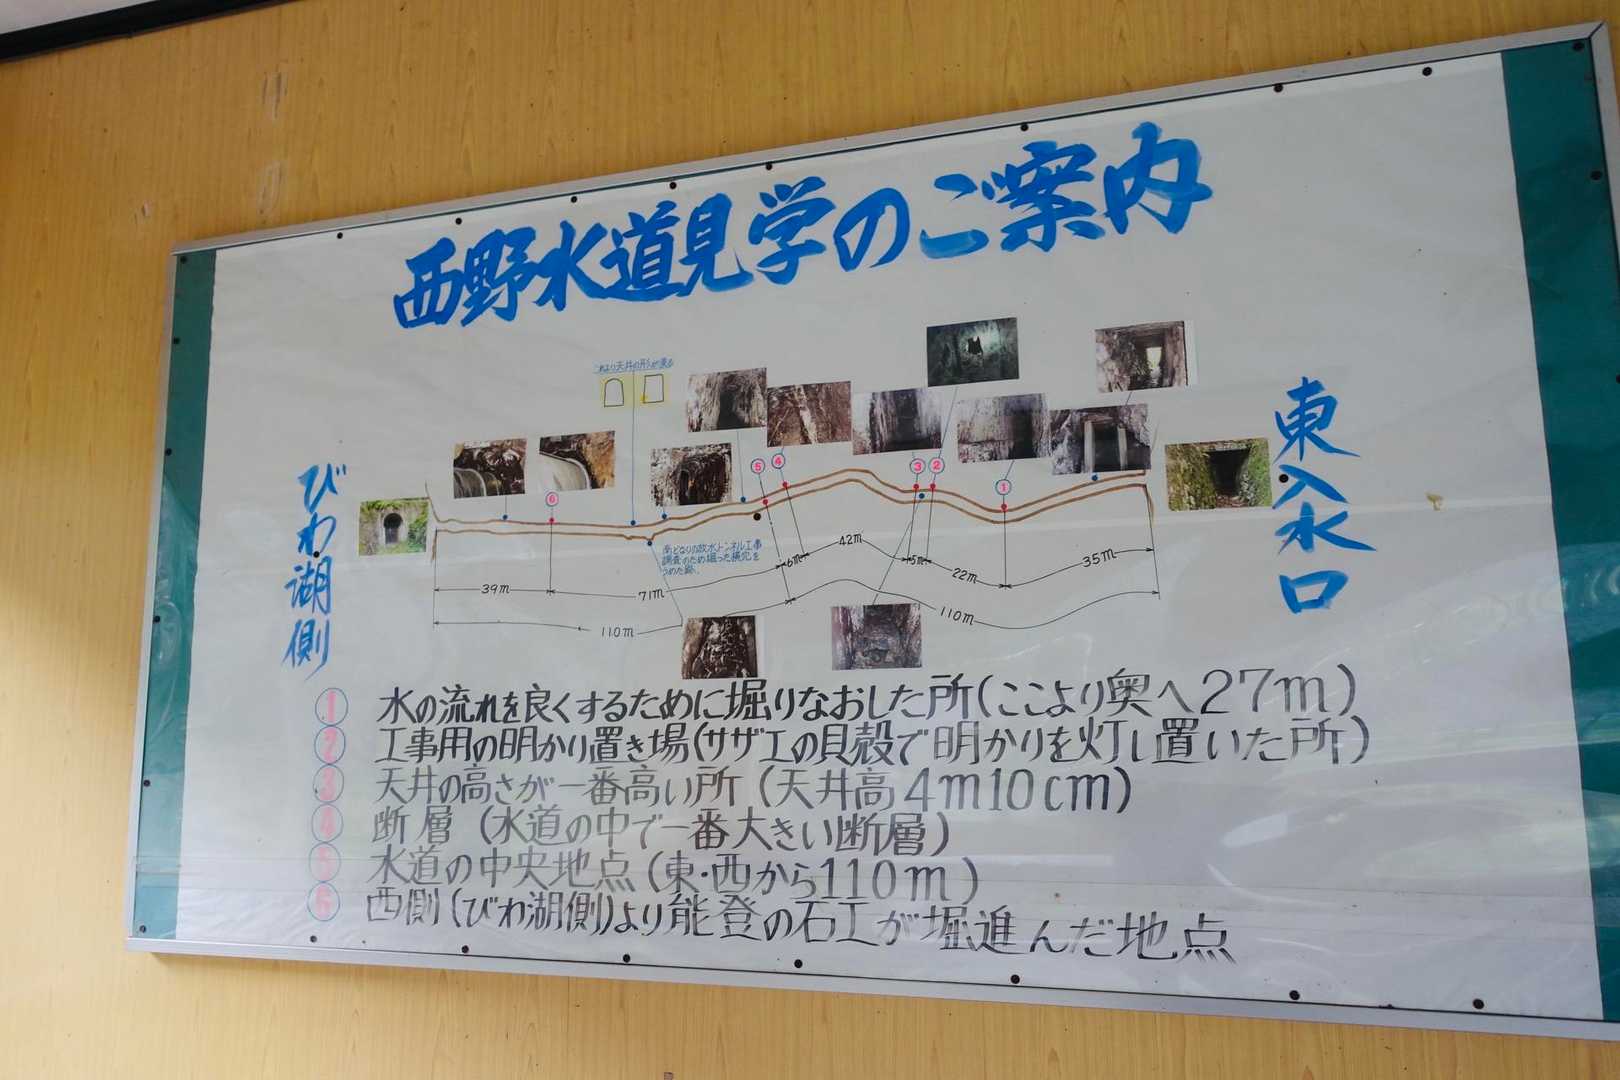 西野水道見学のご案内
これより天井の形が変る
びわ湖側
東入水口
⑥
⑤
④
③
②
①
南どなりの放水トンネル工事
調査のため堀った横穴を
うめた跡、
39m
71m
6m
42m
5m
22m
35m
110m
110m
① 水の流れを良くするために堀りなおした所(ここより奥へ27m)
② 工事用の明かり置き場(サザエの貝殻で明かりを灯し置いた所)
③ 天井の高さが一番高い所(天井高4m10cm)
④ 断層(水道の中で一番大きい断層)
⑤ 水道の中央地点(東・西から110m)
⑥ 西側(びわ湖側)より能登の石工が堀進んだ地点